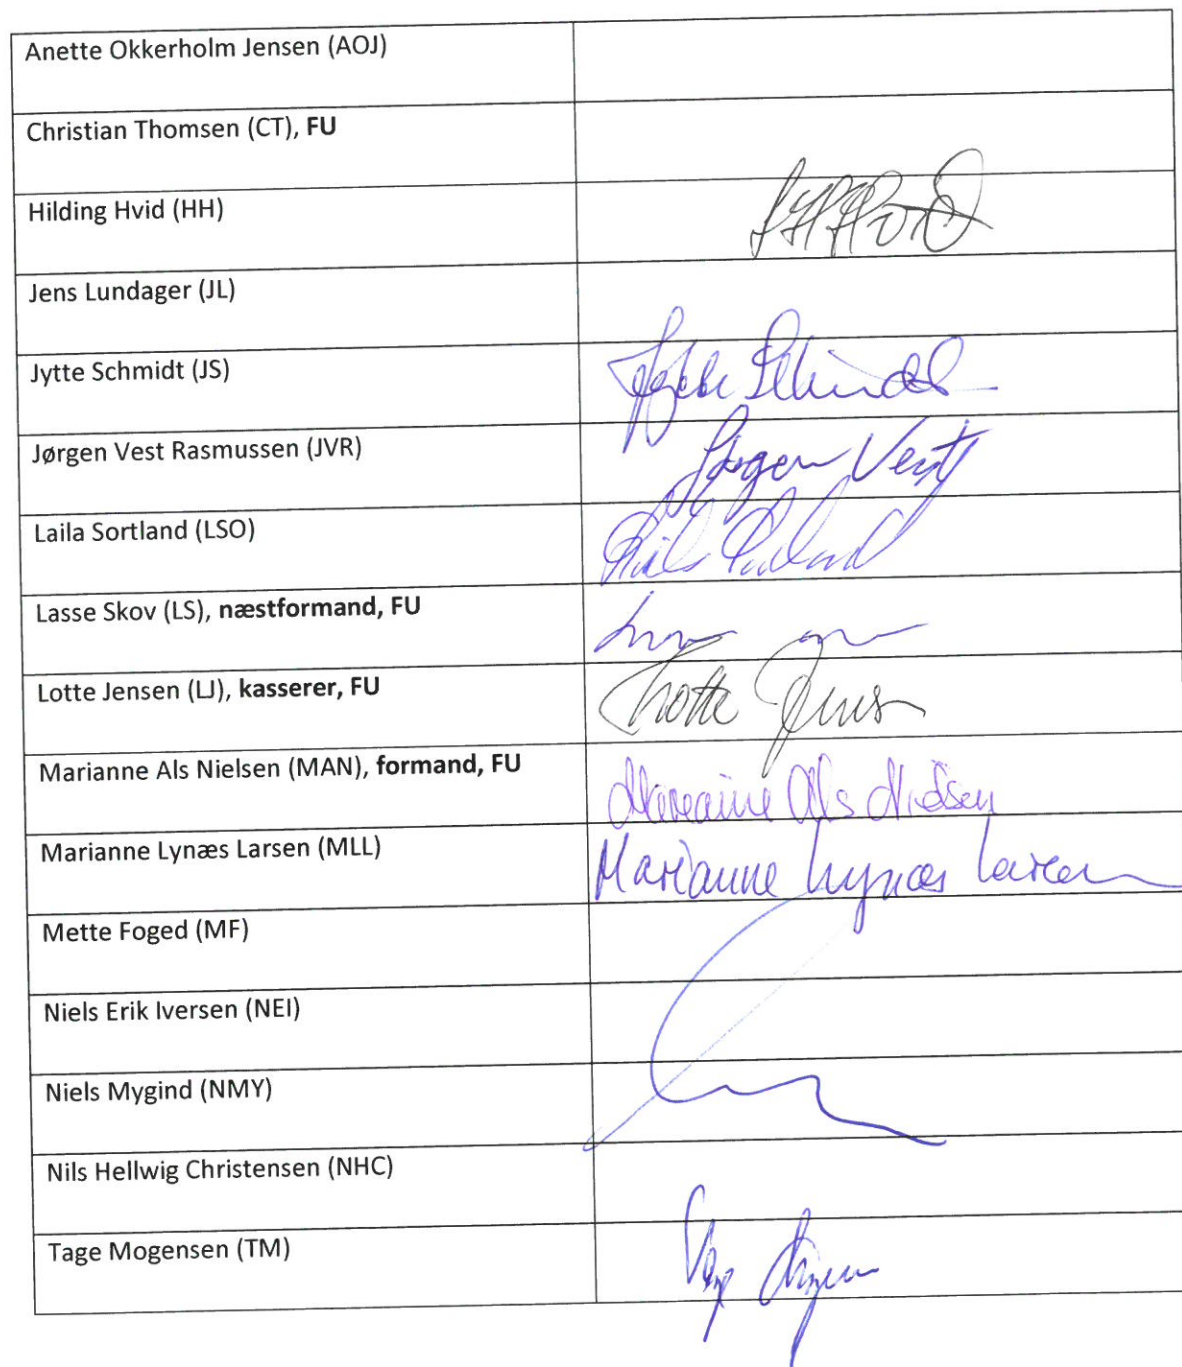 Anette Okkerholm Jensen (AOJ)
Christian Thomsen (CT), FU
Hilding Hvid (HH)
Jens Lundager (JL)
Jytte Schmidt (JS)
Jørgen Vest Rasmussen (JVR)
Jørgen Vest
Laila Sortland (LSO)
Lasse Skov (LS), næstformand, FU
Lotte Jensen (LJ), kasserer, FU
Lotte Jensen
Marianne Als Nielsen (MAN), formand, FU
Marianne Als Nielsen
Marianne Lynæs Larsen (MLL)
Marianne Lynæs Larsen
Mette Foged (MF)
Niels Erik Iversen (NEI)
Niels Mygind (NMY)
Nils Hellwig Christensen (NHC)
Tage Mogensen (TM)